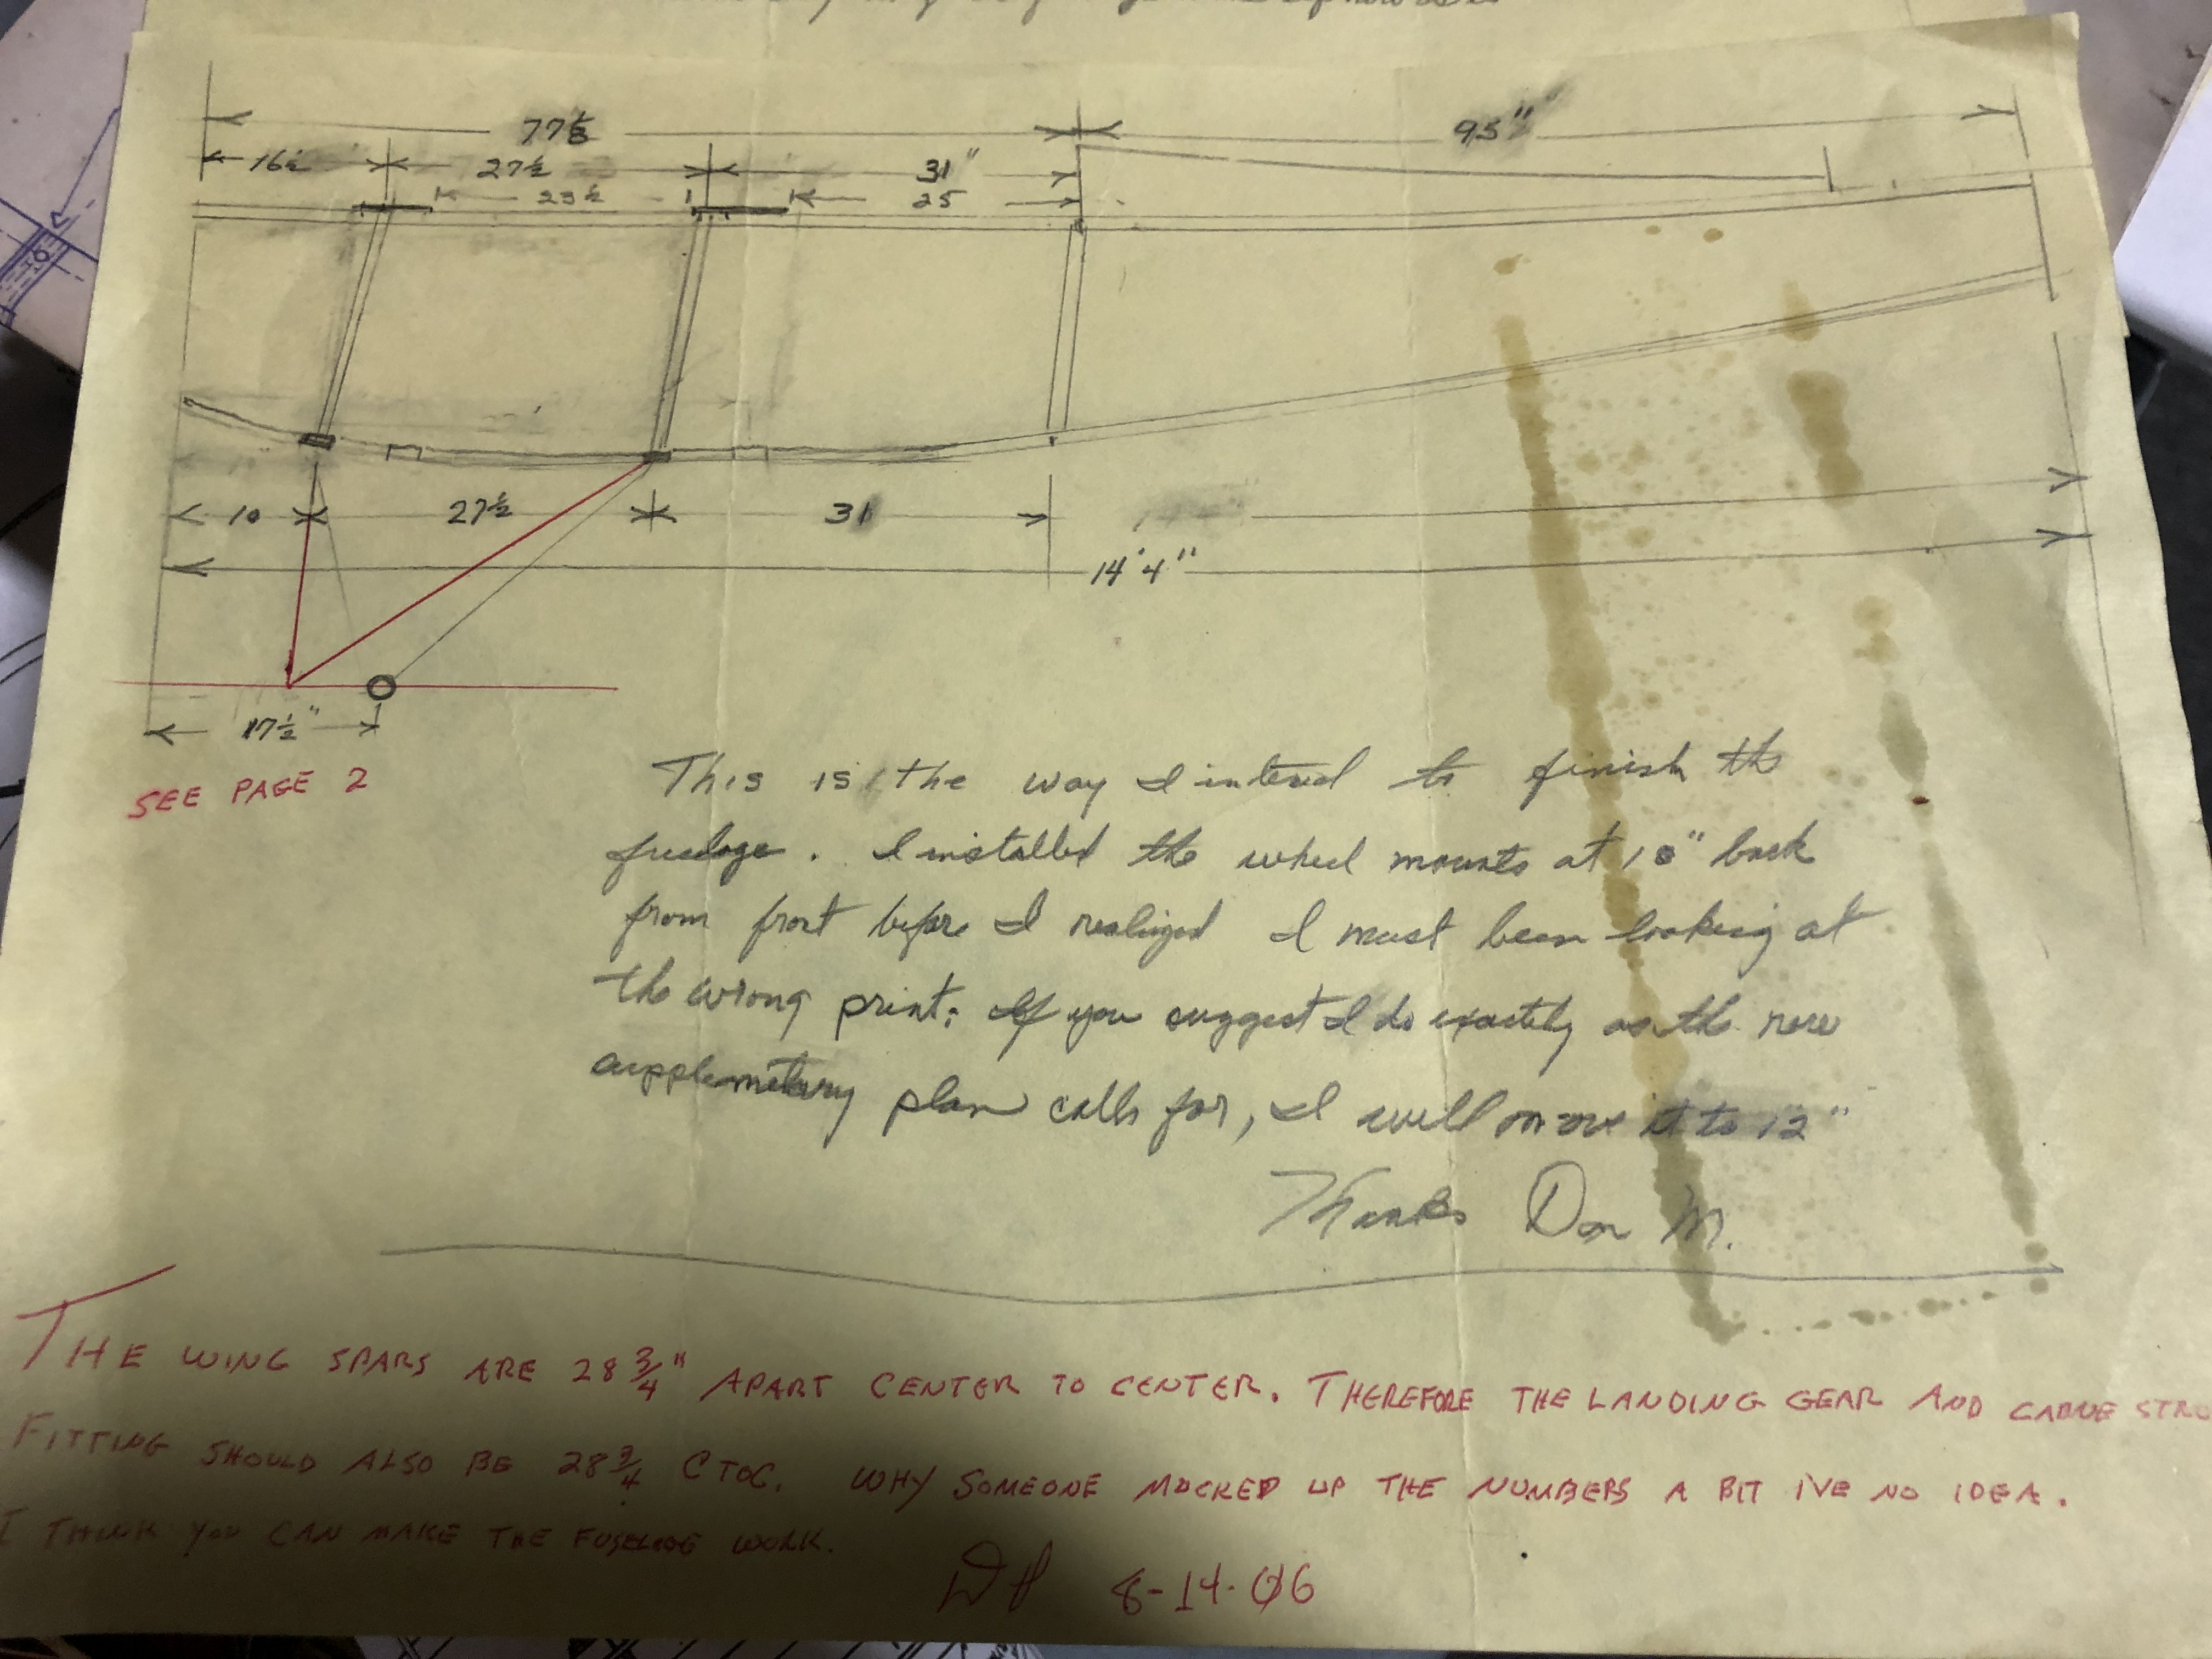 77 1/8
95"
16 1/2
27 1/2
31"
23 1/2
25
10
27 1/2
31
14'4"
17 1/2"
SEE PAGE 2
This is the way I intend to finish the
fuselage. I installed the wheel mounts at 18" back
from front before I realized I must been looking at
the wrong print. If you suggest I do exactly as the new
supplemetary plan calls for, I will move it to 12"
Thanks Don M.
THE WING SPARS ARE 28 3/4" APART CENTER TO CENTER. THEREFORE THE LANDING GEAR AND CABNE
FITTING SHOULD ALSO BE 28 3/4 C TO C. WHY SOMEONE MUCKED UP THE NUMBERS A BIT I'VE NO IDEA.
I THINK YOU CAN MAKE THE FUSELAGE WORK.
8-14-06